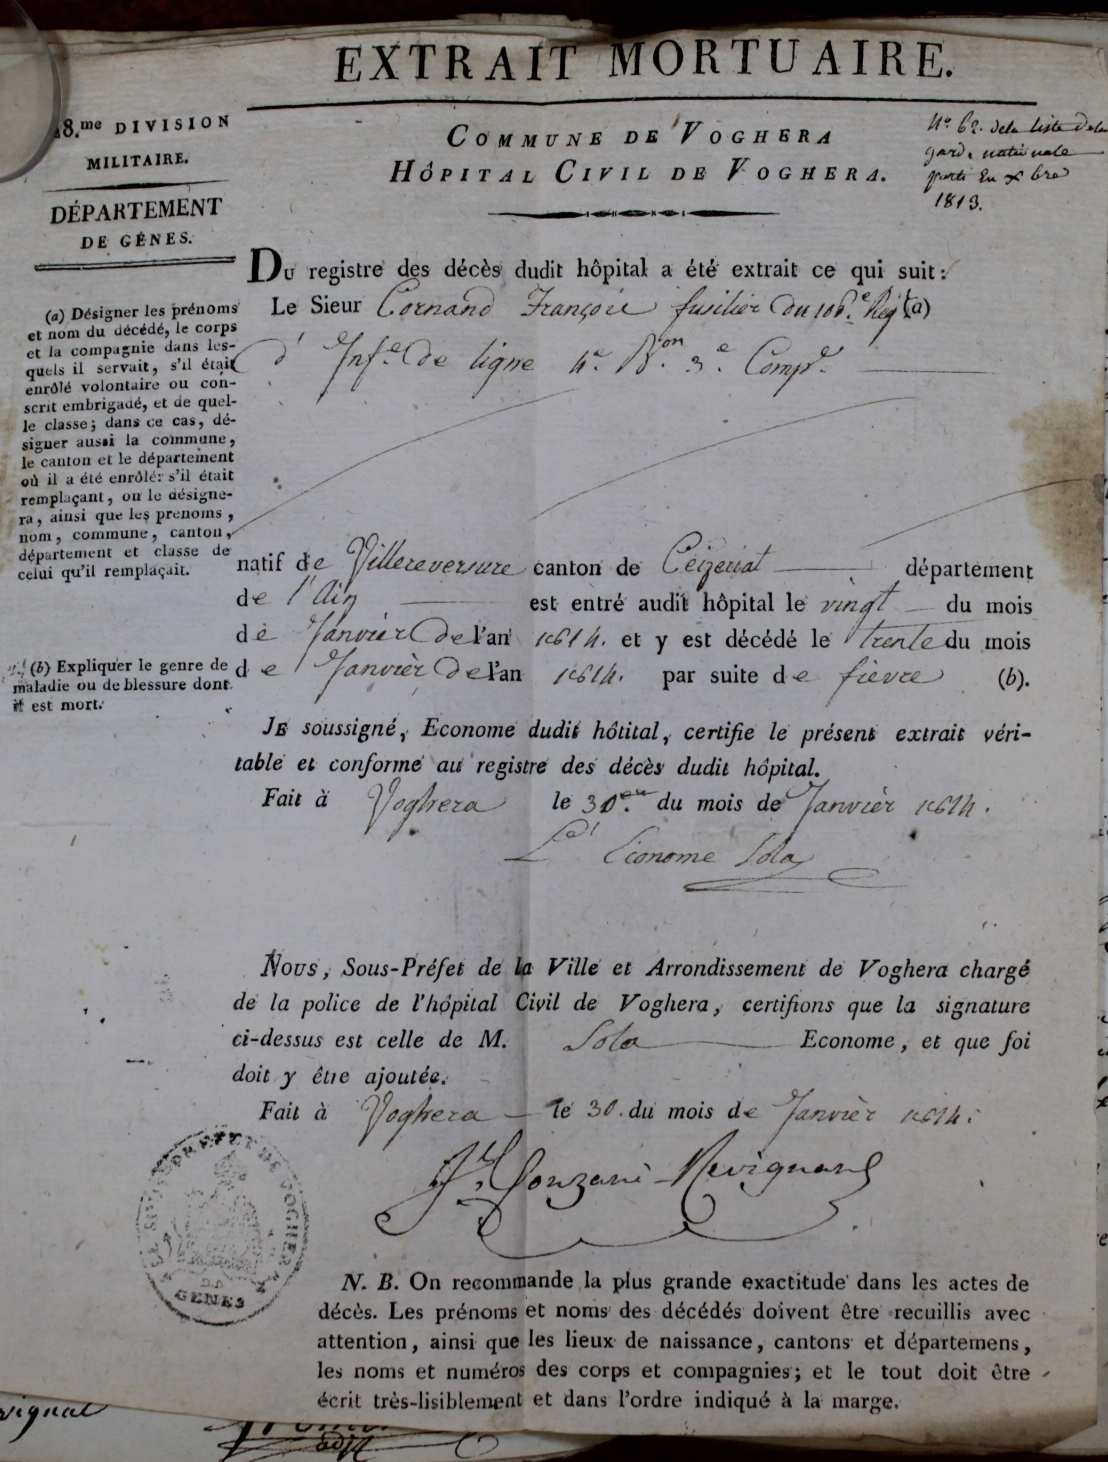 EXTRAIT MORTUAIRE.
8.me DIVISION
MILITAIRE.
DÉPARTEMENT
DE GÊNES.
COMMUNE DE VOGHERA
HÔPITAL CIVIL DE VOGHERA.
N.o 62. dela liste dela
garde nationale
parti En xbre
1813.
DU registre des décès dudit hôpital a été extrait ce qui suit :
Le Sieur Cornand François fusilier du 106.e Regt (a)
d'Inf.e De ligne 4.e B.on 3.e Comp.e
(a) Désigner les prénoms
et nom du décédé, le corps
et la compagnie dans les-
quels il servait, s'il était
enrôlé volontaire ou con-
scrit embrigadé, et de quel-
le classe; dans ce cas, dé-
signer aussi la commune,
le canton et le département
où il a été enrôlé: s'il était
remplaçant, on le désigne-
ra, ainsi que les prenoms,
nom, commune, canton,
département et classe de
celui qu'il remplaçait.
natif de Villereversure canton de Ceizeriat département
de l'Ain est entré audit hôpital le vingt du mois
de Janvièr De l'an 1814. et y est décédé le trente du mois
de Janvièr de l'an 1814. par suite de fièvre (b).
(b) Expliquer le genre de
maladie ou de blessure dont
il est mort.
JE soussigné, Econome dudit hôtital, certifie le présent extrait véri-
table et conforme au registre des décès dudit hôpital.
Fait à Voghera le 30. du mois de Janvièr 1814.
L'Econome Sola
Nous, Sous-Préfet de la Ville et Arrondissement de Voghera chargé
de la police de l'hôpital Civil de Voghera, certifions que la signature
ci-dessus est celle de M. Sola Econome, et que foi
doit y être ajoutée.
Fait à Voghera le 30. du mois de Janvièr 1814.
GENES
N. B. On recommande la plus grande exactitude dans les actes de
décès. Les prénoms et noms des décédés doivent être recuillis avec
attention, ainsi que les lieux de naissance, cantons et départemens,
les noms et numéros des corps et compagnies; et le tout doit être
écrit très-lisiblement et dans l'ordre indiqué à la marge.